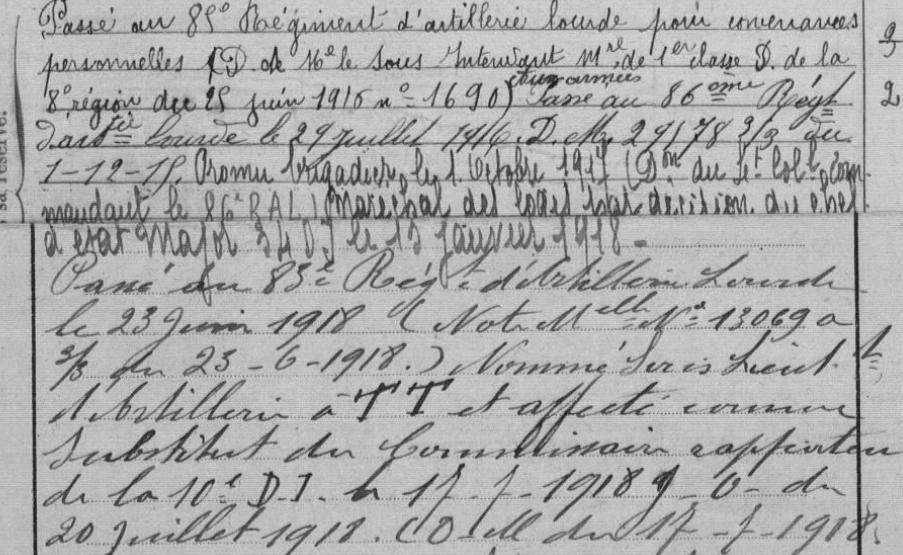 Passé au 85e Régiment d'artillerie lourde pour convenances
personnelles (D. de Mr le Sous Intendant Mre de 1er classe D. de la
8e région du 25 juin 1916 no 1690) aux armées Passé au 86eme Régt
d'artie lourde le 29 juillet 1916. D.M. 29178 3/3 du
1-12-15. Promu brigadier le 1 Octobre 1917 (Don du Lt Coll Com
mandant le 86e RAL) Maréchal des logis par décision du chef
d'état Major 3403 le 13 janvier 1918.-
Passé au 83e Régt d'Artillerie Lourde
le 23 Juin 1918 (Note Melle No 13069 a
3/3 du 23-6-1918.) Nommé Sous Lieut t
d'Artillerie à TT et affecté comme
Substitut du Commissaire rapporteu
de la 10e D.I. le 17-7-1918 J-O- du
20 Juillet 1918. (D-M du 17-7-1918.
sa réserve.
3
2